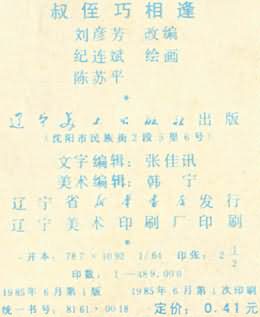 叔侄巧相逢
刘彦芳 改编
纪连斌 绘画
陈苏平
*
辽宁美术出版社出版
(沈阳市民族街2段3里6号)
文字编辑: 张佳讯
美术编辑: 韩宁
辽宁省新华书店发行
辽宁美术印刷厂印刷
*
开本: 787×1092 1/64 印张: 2 1/2
印数: 1—489,000
1985年6月第1版 1985年6月第1次印刷
统一书号: 8161·0018 定价: 0.41元